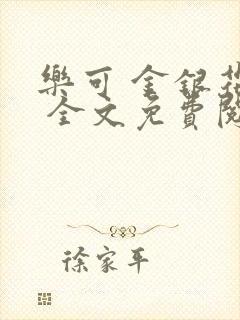 樂可 金銀花
全文免費閱
徐家平